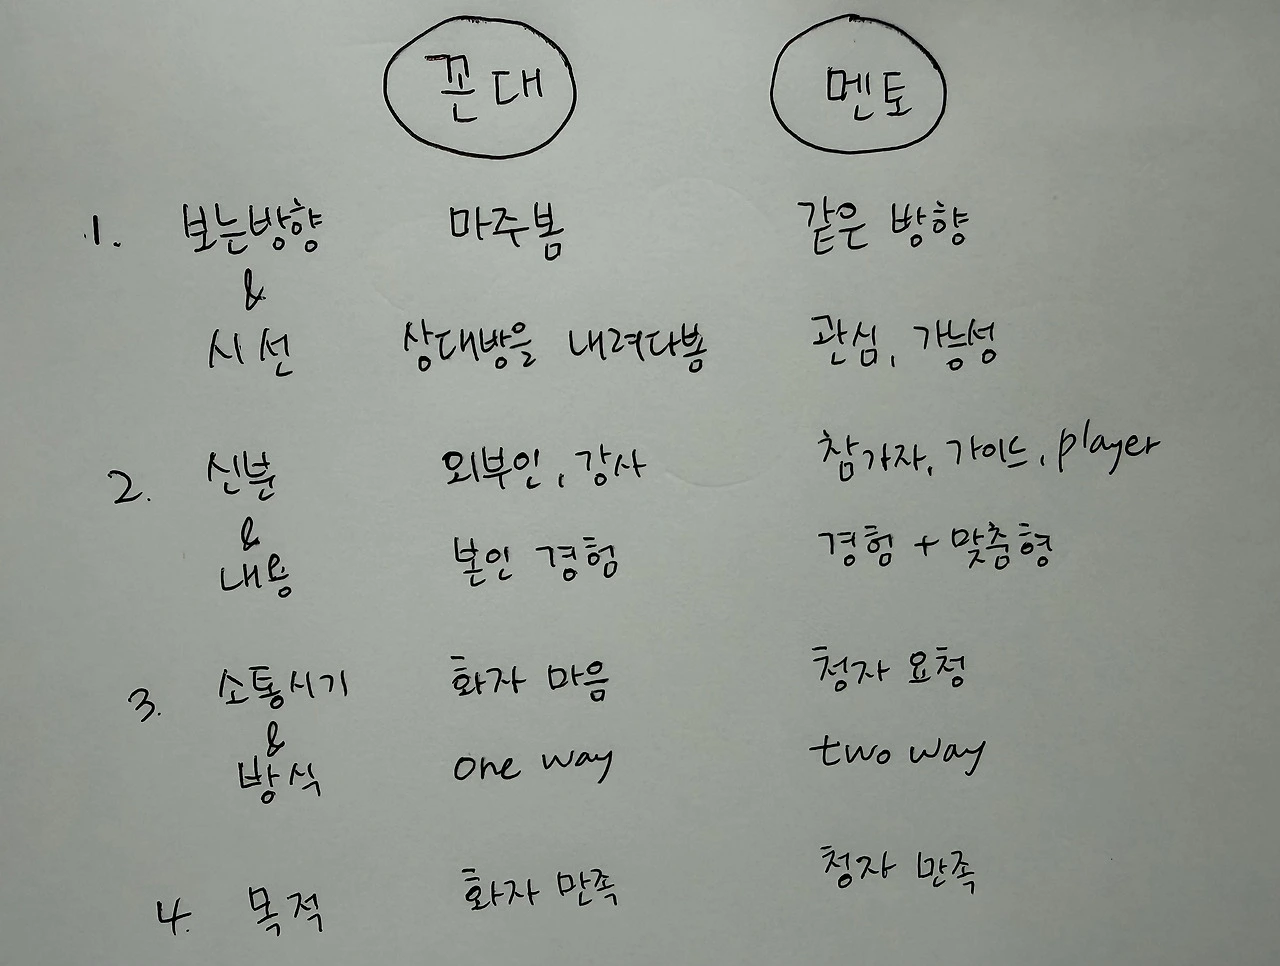 꼰대 멘토
1. 보는방향 마주봄 같은 방향
&
시선 상대방을 내려다봄 관심, 가능성
2. 신분 외부인, 강사 참가자, 가이드, player
&
내용 본인 경험 경험 + 맞춤형
3. 소통시기 화자 마음 청자 요청
&
방식 one way two way
4. 목적 화자 만족 청자 만족